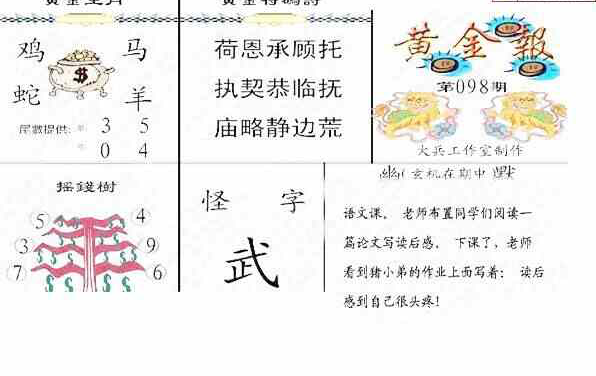 黄金生肖
鸡 马
蛇 羊
$
尾数提供: 3 5
0 4
黄金特碼詩
荷恩承顾托
执契恭临抚
庙略静边荒
黄金報
第098期
大兵工作室制作
摇錢樹
5 4
3 9
7 6
怪 字
武
幽(玄机在期中)默
语文课， 老师布置同学们阅读一
篇论文写读后感， 下课了，老师
看到猪小弟的作业上面写着： 读后
感到自己很头疼！